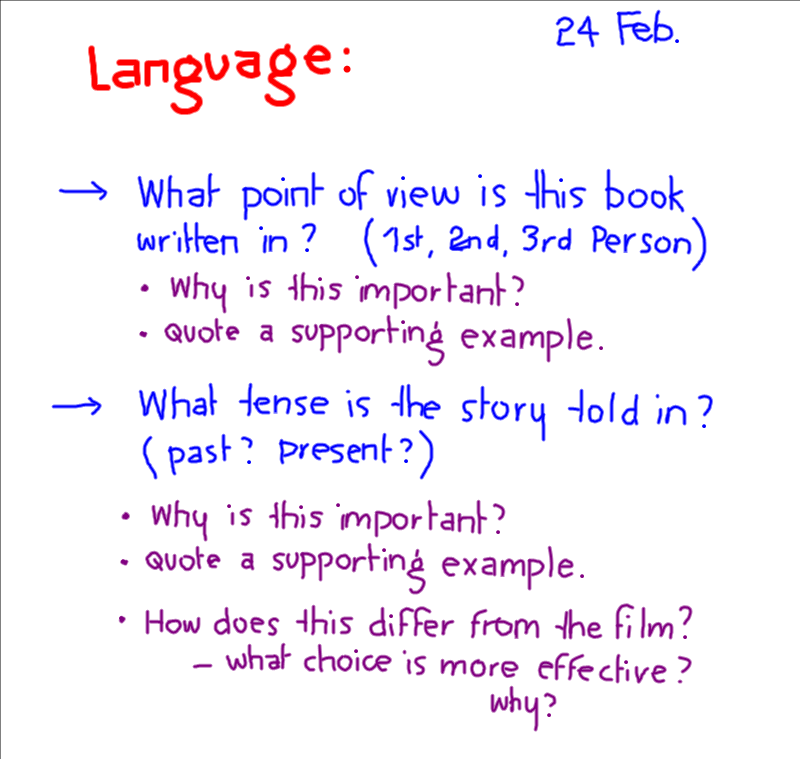 24 Feb.
Language:
→ What point of view is this book
written in? (1st, 2nd, 3rd Person)
• Why is this important?
• Quote a supporting example.
→ What tense is the story told in?
(past? present?)
• Why is this important?
• Quote a supporting example.
• How does this differ from the film?
– what choice is more effective?
why?